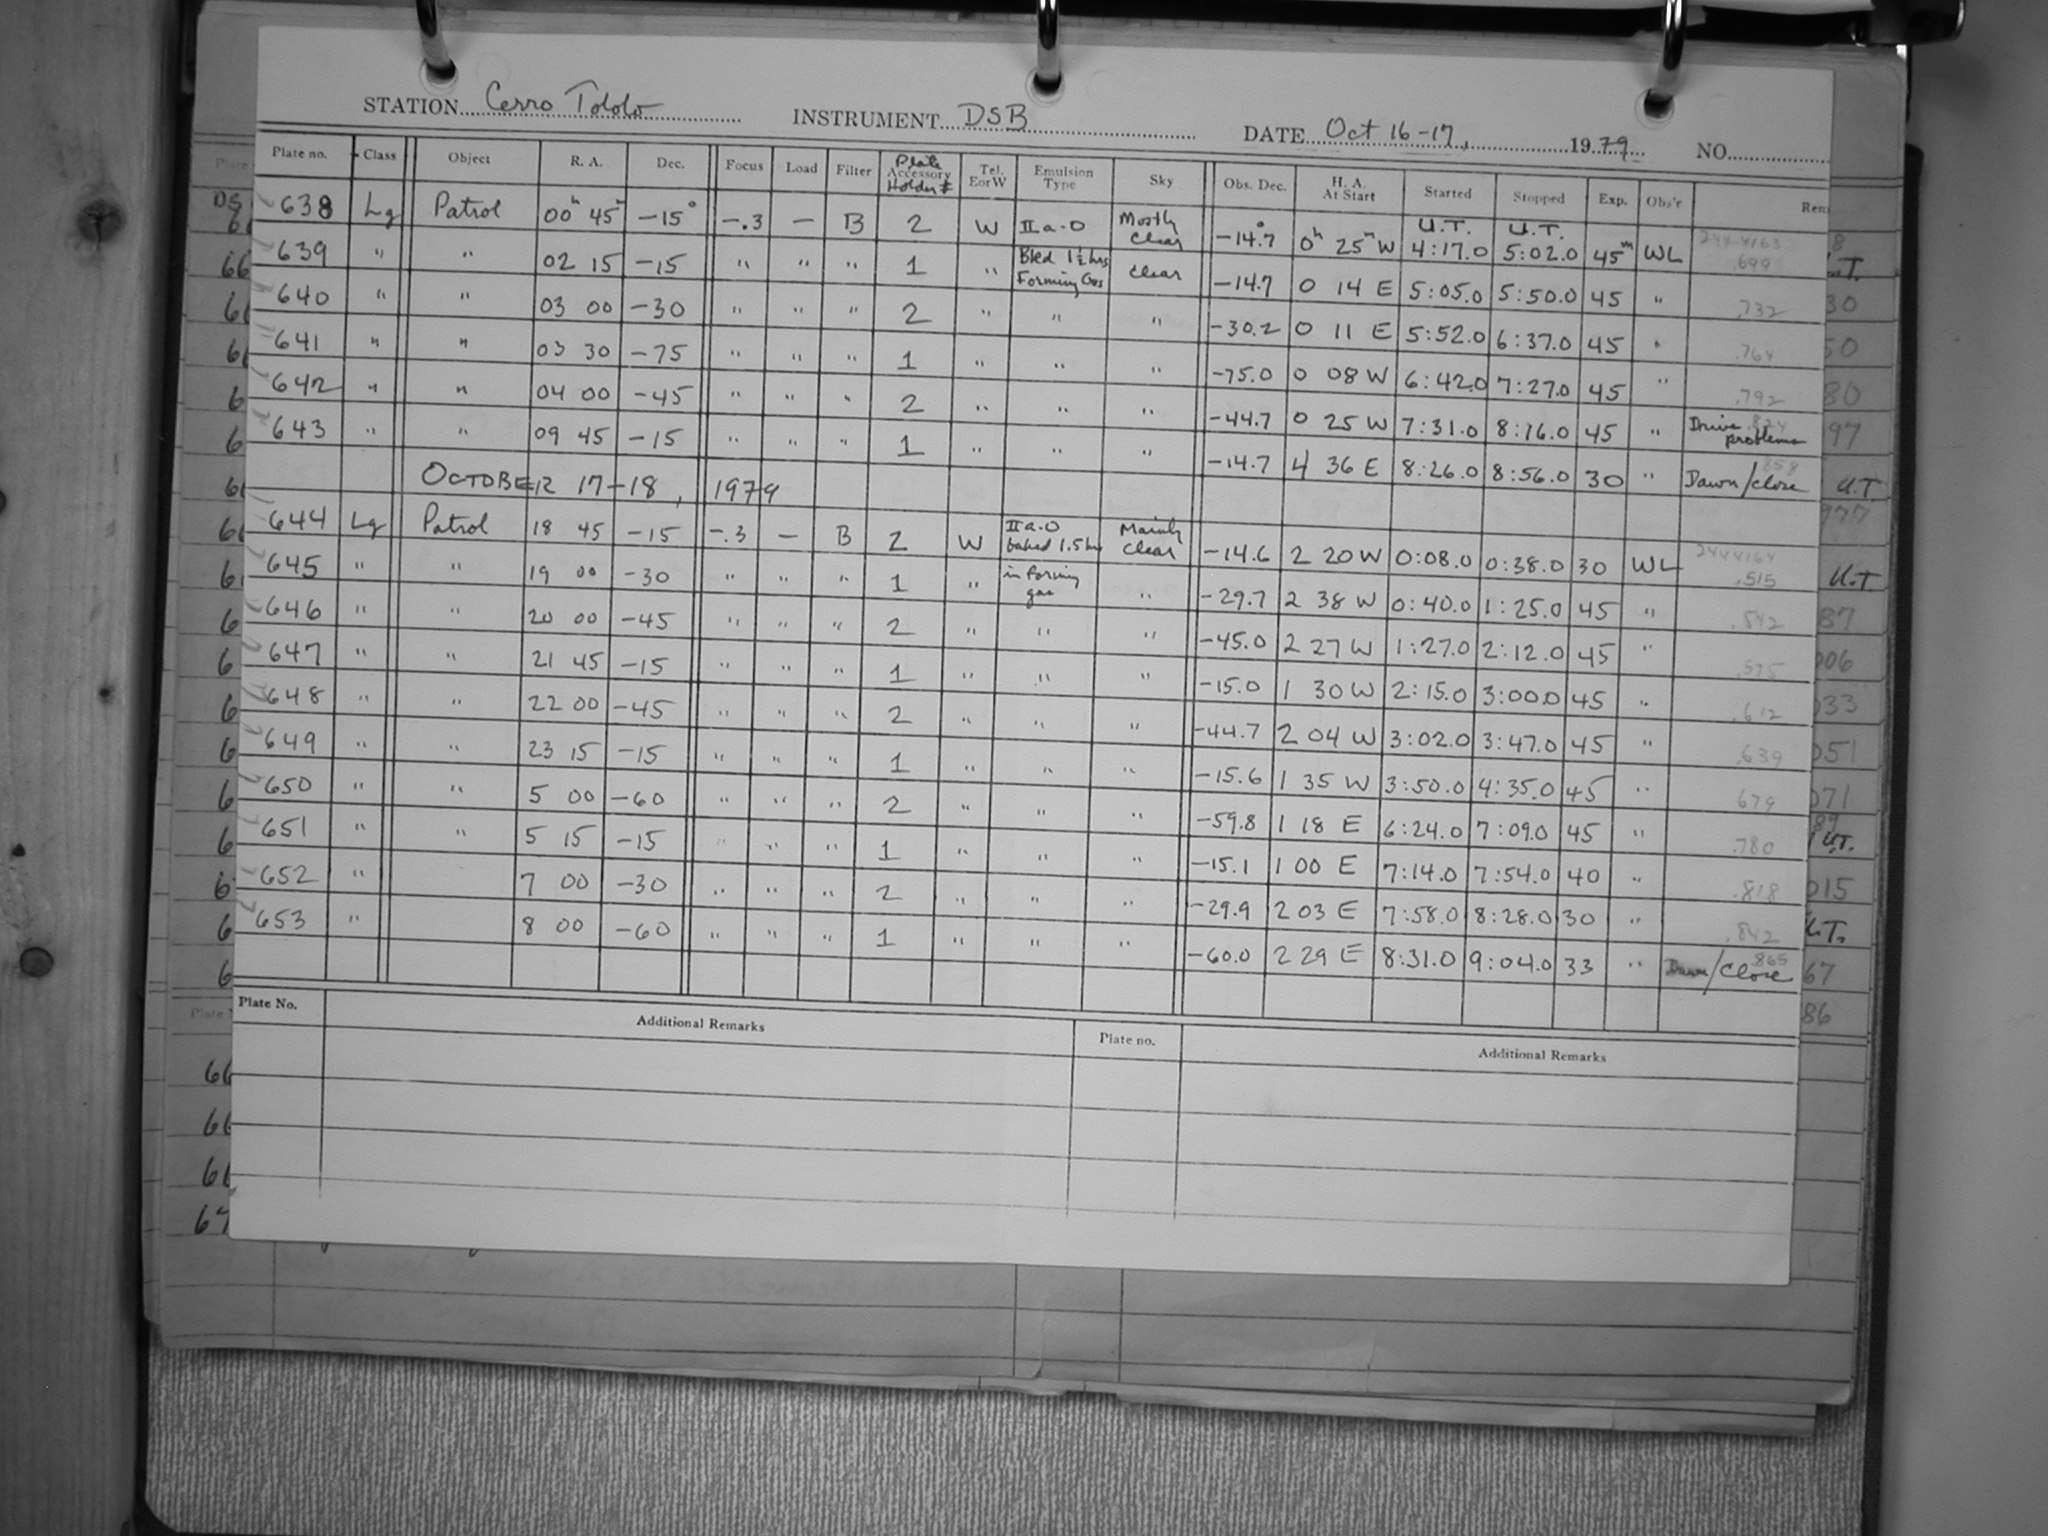 STATION Cerro Tololo INSTRUMENT DSB DATE Oct 16-17, 1979 NO.
Plate no. Class Object R. A. Dec. Focus Load Filter Plate Accessory Holder # Tel. E or W Emulsion Type Sky Obs. Dec. H. A. At Start Started Stopped Exp. Obs'r Rem
U.T. U.T.
638 Lg Patrol 00h 45m -15° -.3 — B 2 W IIa-O Mostly Clear -14.7 0h 25m W 4:17.0 5:02.0 45m WL 2444163 .699
639 " " 02 15 -15 " " " 1 " Bked 1½ hrs Forming Gas clear -14.7 0 14 E 5:05.0 5:50.0 45 " .732
640 " " 03 00 -30 " " " 2 " " " -30.2 0 11 E 5:52.0 6:37.0 45 " .764
641 " " 03 30 -75 " " " 1 " " " -75.0 0 08 W 6:42.0 7:27.0 45 " .792
642 " " 04 00 -45 " " " 2 " " " -44.7 0 25 W 7:31.0 8:16.0 45 " Drive problems
643 " " 09 45 -15 " " " 1 " " " -14.7 4 36 E 8:26.0 8:56.0 30 " .858 Dawn/close
OCTOBER 17-18, 1979
644 Lg Patrol 18 45 -15 -.3 — B 2 W IIa-O baked 1.5 hr Mainly Clear -14.6 2 20 W 0:08.0 0:38.0 30 WL 2444164 .515
645 " " 19 00 -30 " " " 1 " in forming gas " -29.7 2 38 W 0:40.0 1:25.0 45 " .542
646 " " 20 00 -45 " " " 2 " " " -45.0 2 27 W 1:27.0 2:12.0 45 " .575
647 " " 21 45 -15 " " " 1 " " " -15.0 1 30 W 2:15.0 3:00.0 45 " .612
648 " " 22 00 -45 " " " 2 " " " -44.7 2 04 W 3:02.0 3:47.0 45 " .639
649 " " 23 15 -15 " " " 1 " " " -15.6 1 35 W 3:50.0 4:35.0 45 " .679
650 " " 5 00 -60 " " " 2 " " " -59.8 1 18 E 6:24.0 7:09.0 45 " .780
651 " " 5 15 -15 " " " 1 " " " -15.1 1 00 E 7:14.0 7:54.0 40 " .818
652 " 7 00 -30 " " " 2 " " " -29.9 2 03 E 7:58.0 8:28.0 30 " .842
653 " 8 00 -60 " " " 1 " " " -60.0 2 29 E 8:31.0 9:04.0 33 " .865 Dawn/Close
Plate No. Additional Remarks Plate no. Additional Remarks